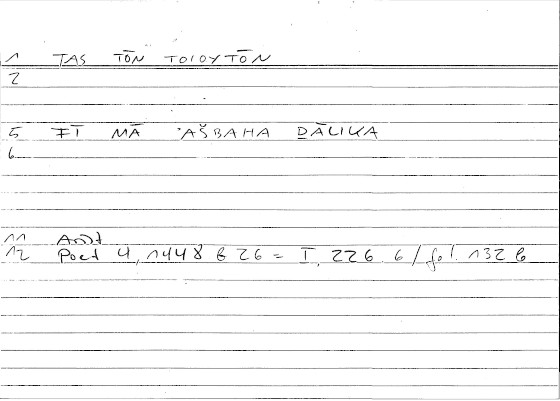 1 TAS TŌN TOIOYTŌN
2
5 FĪ MĀ 'AŠBAHA ḎĀLIKA
6
11 Arist
12 Poet 4, 1448 b 26 = I, 226 6 / fol. 132 b